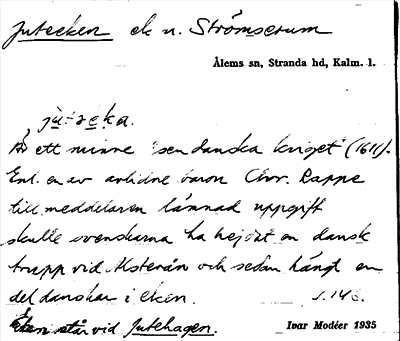 Juteeken ek n. Strömserum
Ålems sn, Stranda hd, Kalm. l.
jù·tɘeka.
Är ett minne "sen danska kriget" (1611).
Enl. en av avlidne baron Chr. Rappe
till meddelaren lämnad uppgift
skulle svenskarna ha hejdat en dansk
trupp vid Alsterån och sedan hängt en
del danskar i eken. s. 146.
Eken står vid Jutehagen. Ivar Modéer 1935